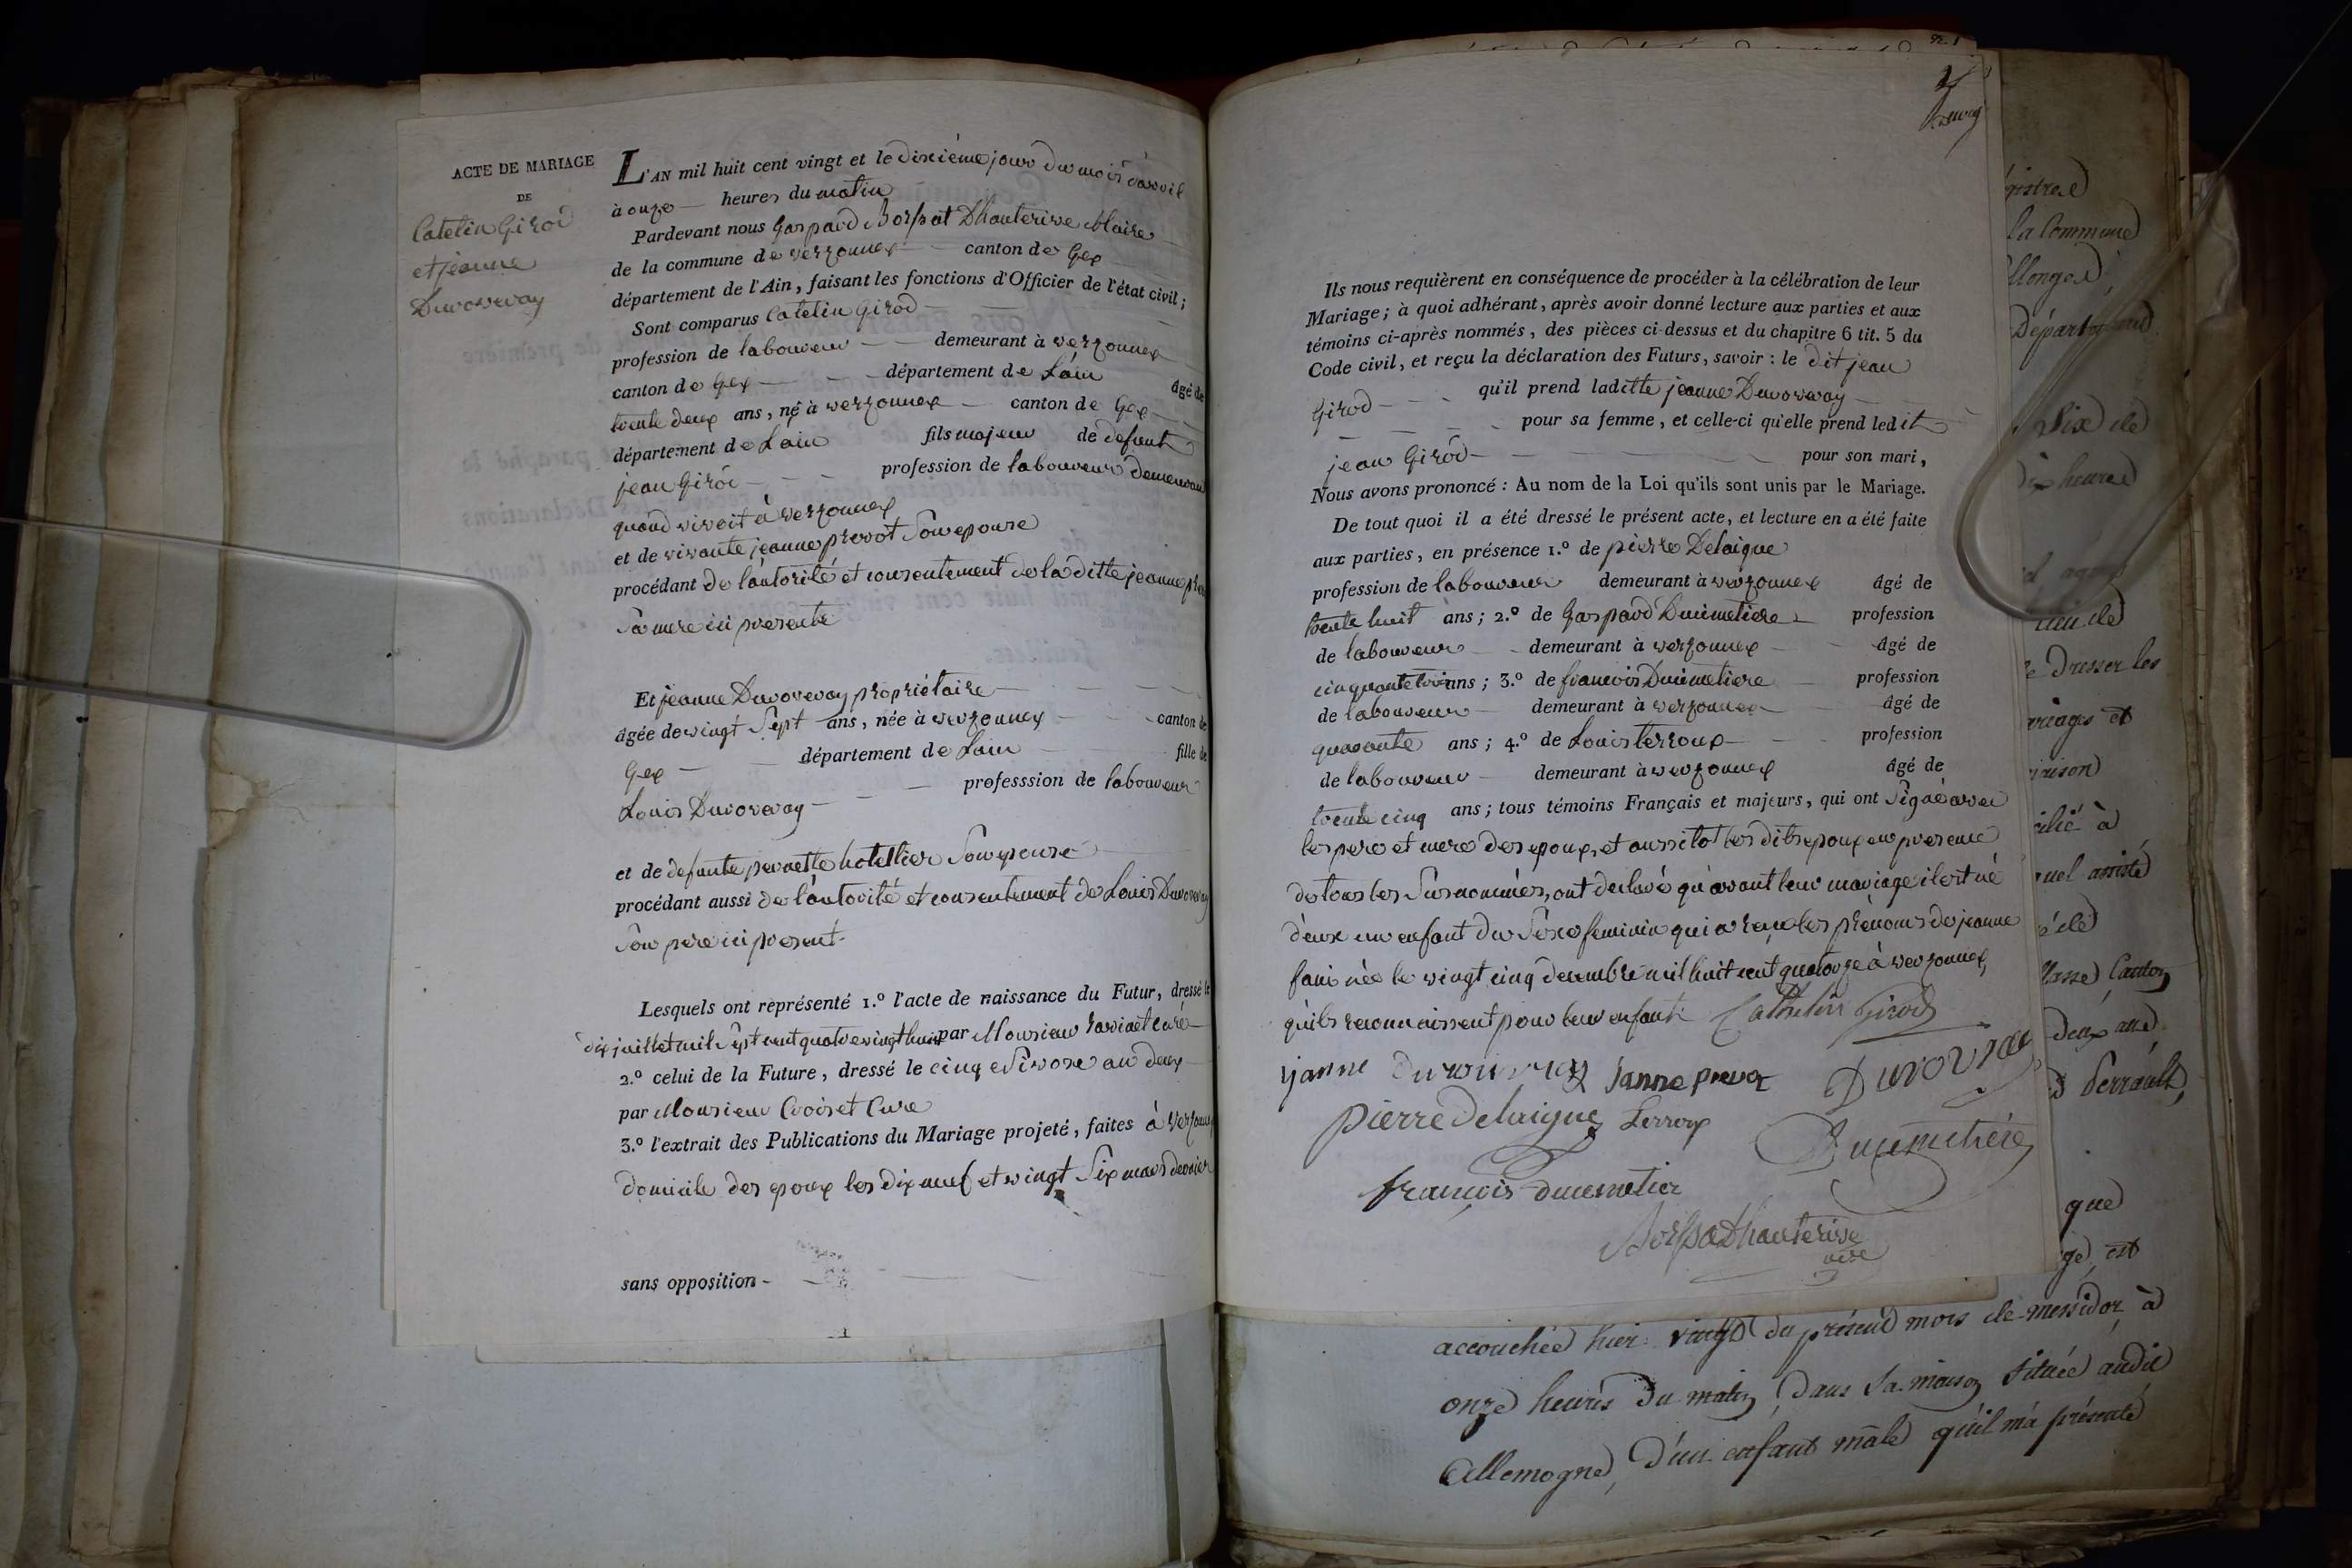 ACTE DE MARIAGE
DE
Catelin Girod
et jeanne
Duvorvray
L'AN mil huit cent vingt et le dixième jour du mois d'avril
à onze heures du matin
Pardevant nous Gaspard Borssat Dhauterive Maire
de la commune de verzonnex canton de Gex
département de l'Ain, faisant les fonctions d'Officier de l'état civil;
Sont comparus Catelin Girod
profession de laboureur demeurant à verzonnex
canton de Gex département de Lain âgé de
trente deux ans, né à verzonnex canton de Gex
département de Lain fils majeur de defunt
jean Girod profession de laboureur demeurant
quand vivoit à verzonnex
et de vivante jeanne prevot Son epouse
procédant de l'autorité et consentement de la ditte jeanne
Sa mere ici presente
Et jeanne Duvorvray propriétaire
âgée de vingt Sept ans, née à verzonnex canton de
Gex département de Lain fille de
Louis Duvorvray professsion de laboureur
et de defunte pernette hotellier Son epouse
procédant aussi de l'autorité et consentement de Louis Duvorvray
Son pere ici present
Lesquels ont représenté 1.º l'acte de naissance du Futur, dressé le
dix juillet mil Sept cent quatre vingt huit par Monsieur curé
2.º celui de la Future, dressé le cinq nivose an deux
par Monsieur Croiset Cure
3.º l'extrait des Publications du Mariage projeté, faites à Verzonnex
domicile des epoux les dix neuf et vingt Six mars dernier
sans opposition
Ils nous requièrent en conséquence de procéder à la célébration de leur
Mariage; à quoi adhérant, après avoir donné lecture aux parties et aux
témoins ci-après nommés, des pièces ci-dessus et du chapitre 6 tit. 5 du
Code civil, et reçu la déclaration des Futurs, savoir : le dit jean
Girod qu'il prend laditte jeanne Duvorvray
pour sa femme, et celle-ci qu'elle prend ledit
jean Girod pour son mari,
Nous avons prononcé : Au nom de la Loi qu'ils sont unis par le Mariage.
De tout quoi il a été dressé le présent acte, et lecture en a été faite
aux parties, en présence 1.º de pierre Delaigue
profession de laboureur demeurant à verzonnex âgé de
trente huit ans; 2.º de Gaspard Ducimetiere profession
de laboureur demeurant à verzonnex âgé de
cinquante trois ans; 3.º de francois Ducimetiere profession
de laboureur demeurant à verzonnex âgé de
quarante ans; 4.º de Louis terroux profession
de laboureur demeurant à verzonnex âgé de
trente cinq ans; tous témoins Français et majeurs, qui ont Signé avec
les pere et mere des epoux, et aussitot les dits epoux en presence
de tous les Susnommées, ont declaré qu'avant leur mariage il est né
d'eux un enfant du Sexe feminin qui a reçu les prénoms de jeanne
fani née le vingt cinq decembre mil huit cent quatorze à verzonnex,
qu'ils reconnaissent pour leur enfant Cathelin Girod
janne duvouvray janne prevot Duvovray
pierre Delaigue Terroux
Ducimetiére
françois ducimetier
Borssat Dhauterive
gistre
la Commune
Département
Dix de
dix heures
Dresser les
mariages et
quel assisté
Canton
deux ans
Perrault,
que
est
accouchée hier vingt du présent mois de messidor, à
onze heures du matin, dans sa maison située audit
Allemogne, d'un enfant mâle qu'il m'a présenté